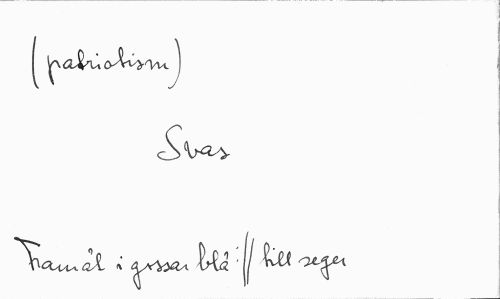 (patriotism)
Svas
Framåt i gossar blå :// till seger